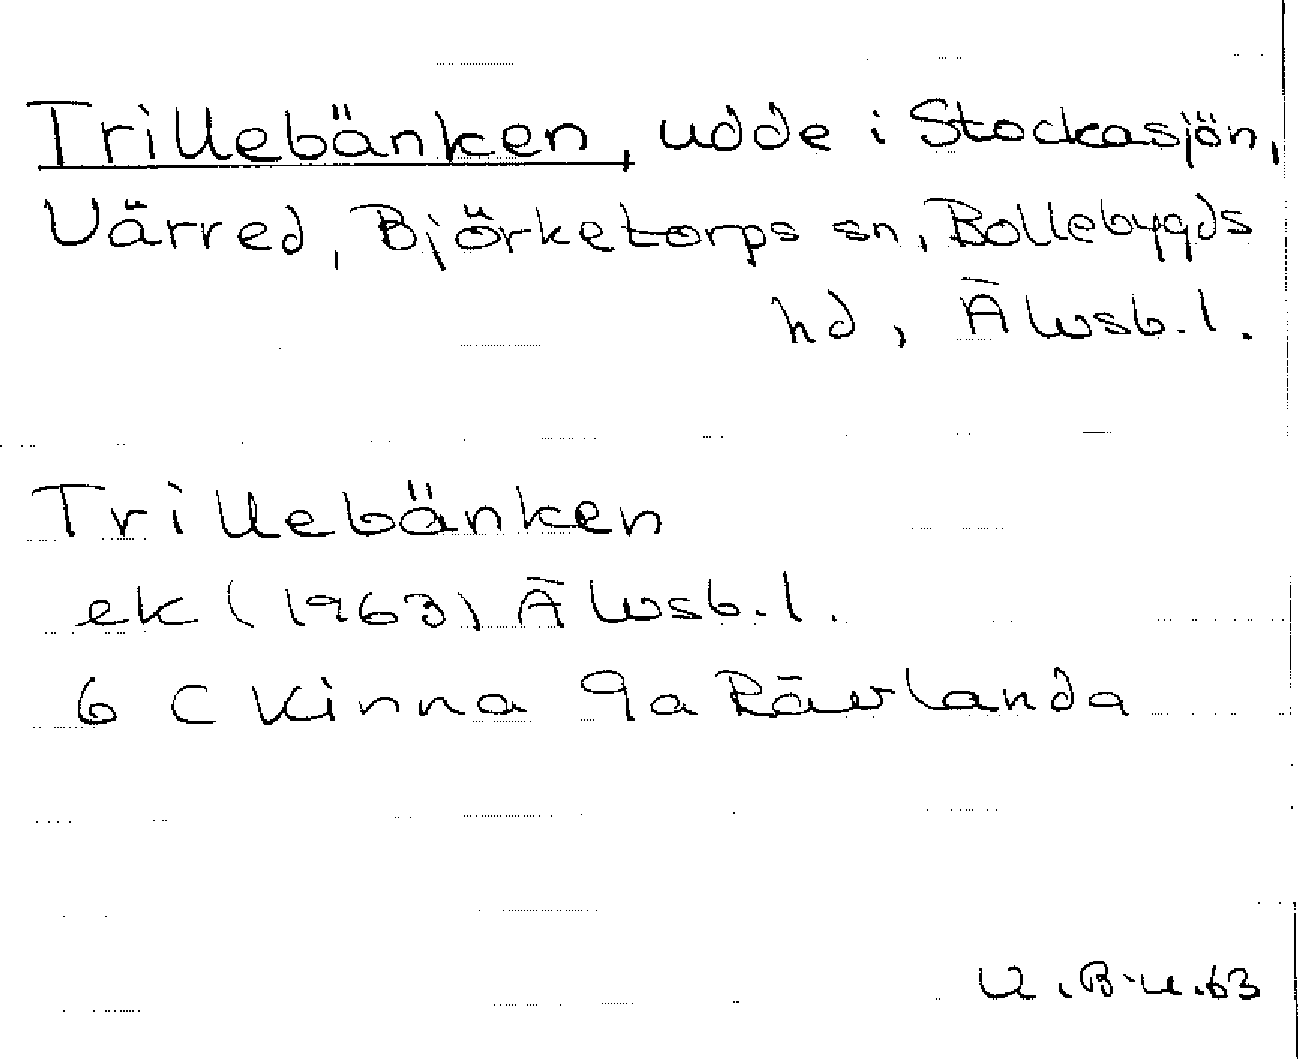 Trillebänken, udde i Stockasjön,
Värred, Björketorps sn, Bollebygds
hd, Älvsb. l.
Trillebänken
ek (1963) Älvsb. l.
6 C Kinna 9a Rävlanda
63